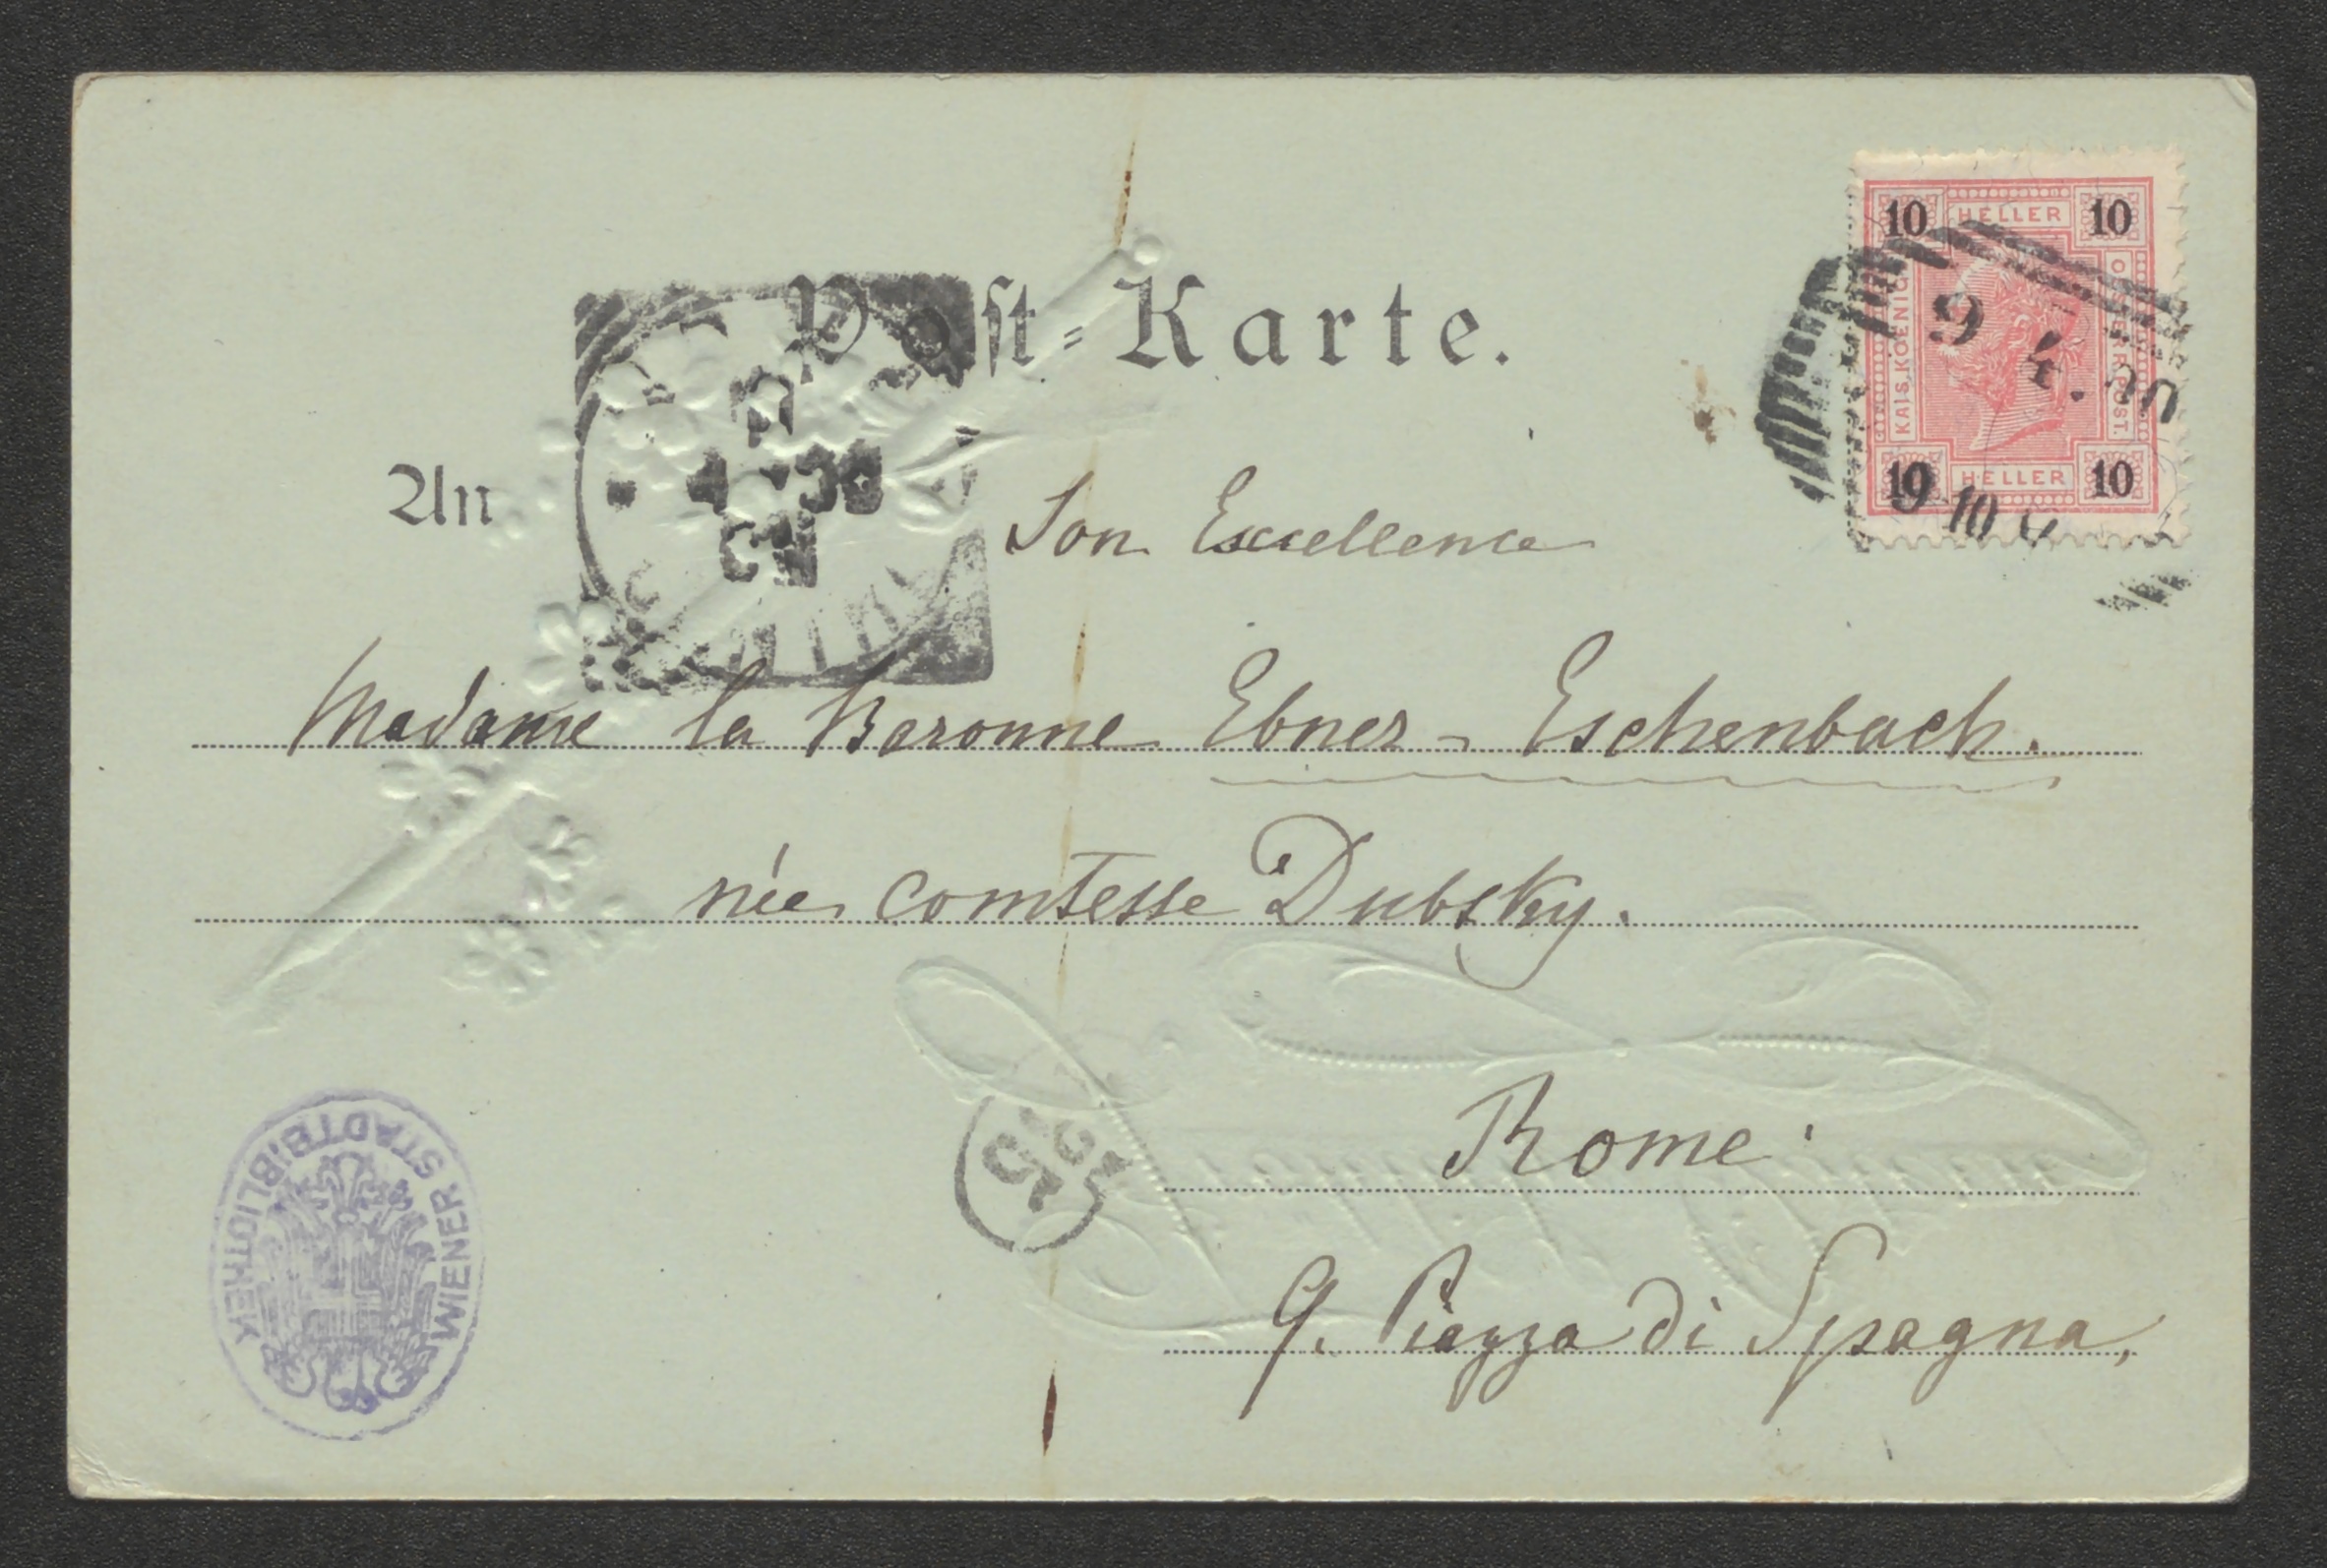 Post-Karte.
10 HELLER 10
KAIS. KOENIG.
10 HELLER 10
9 4
An
Son Excellence
Madame la Baronne Ebner-Eschenbach.
née comtesse Dubsky.
Rome.
9. Piazza di Spagna,
15
WIENER STADTBIBLIOTHEK